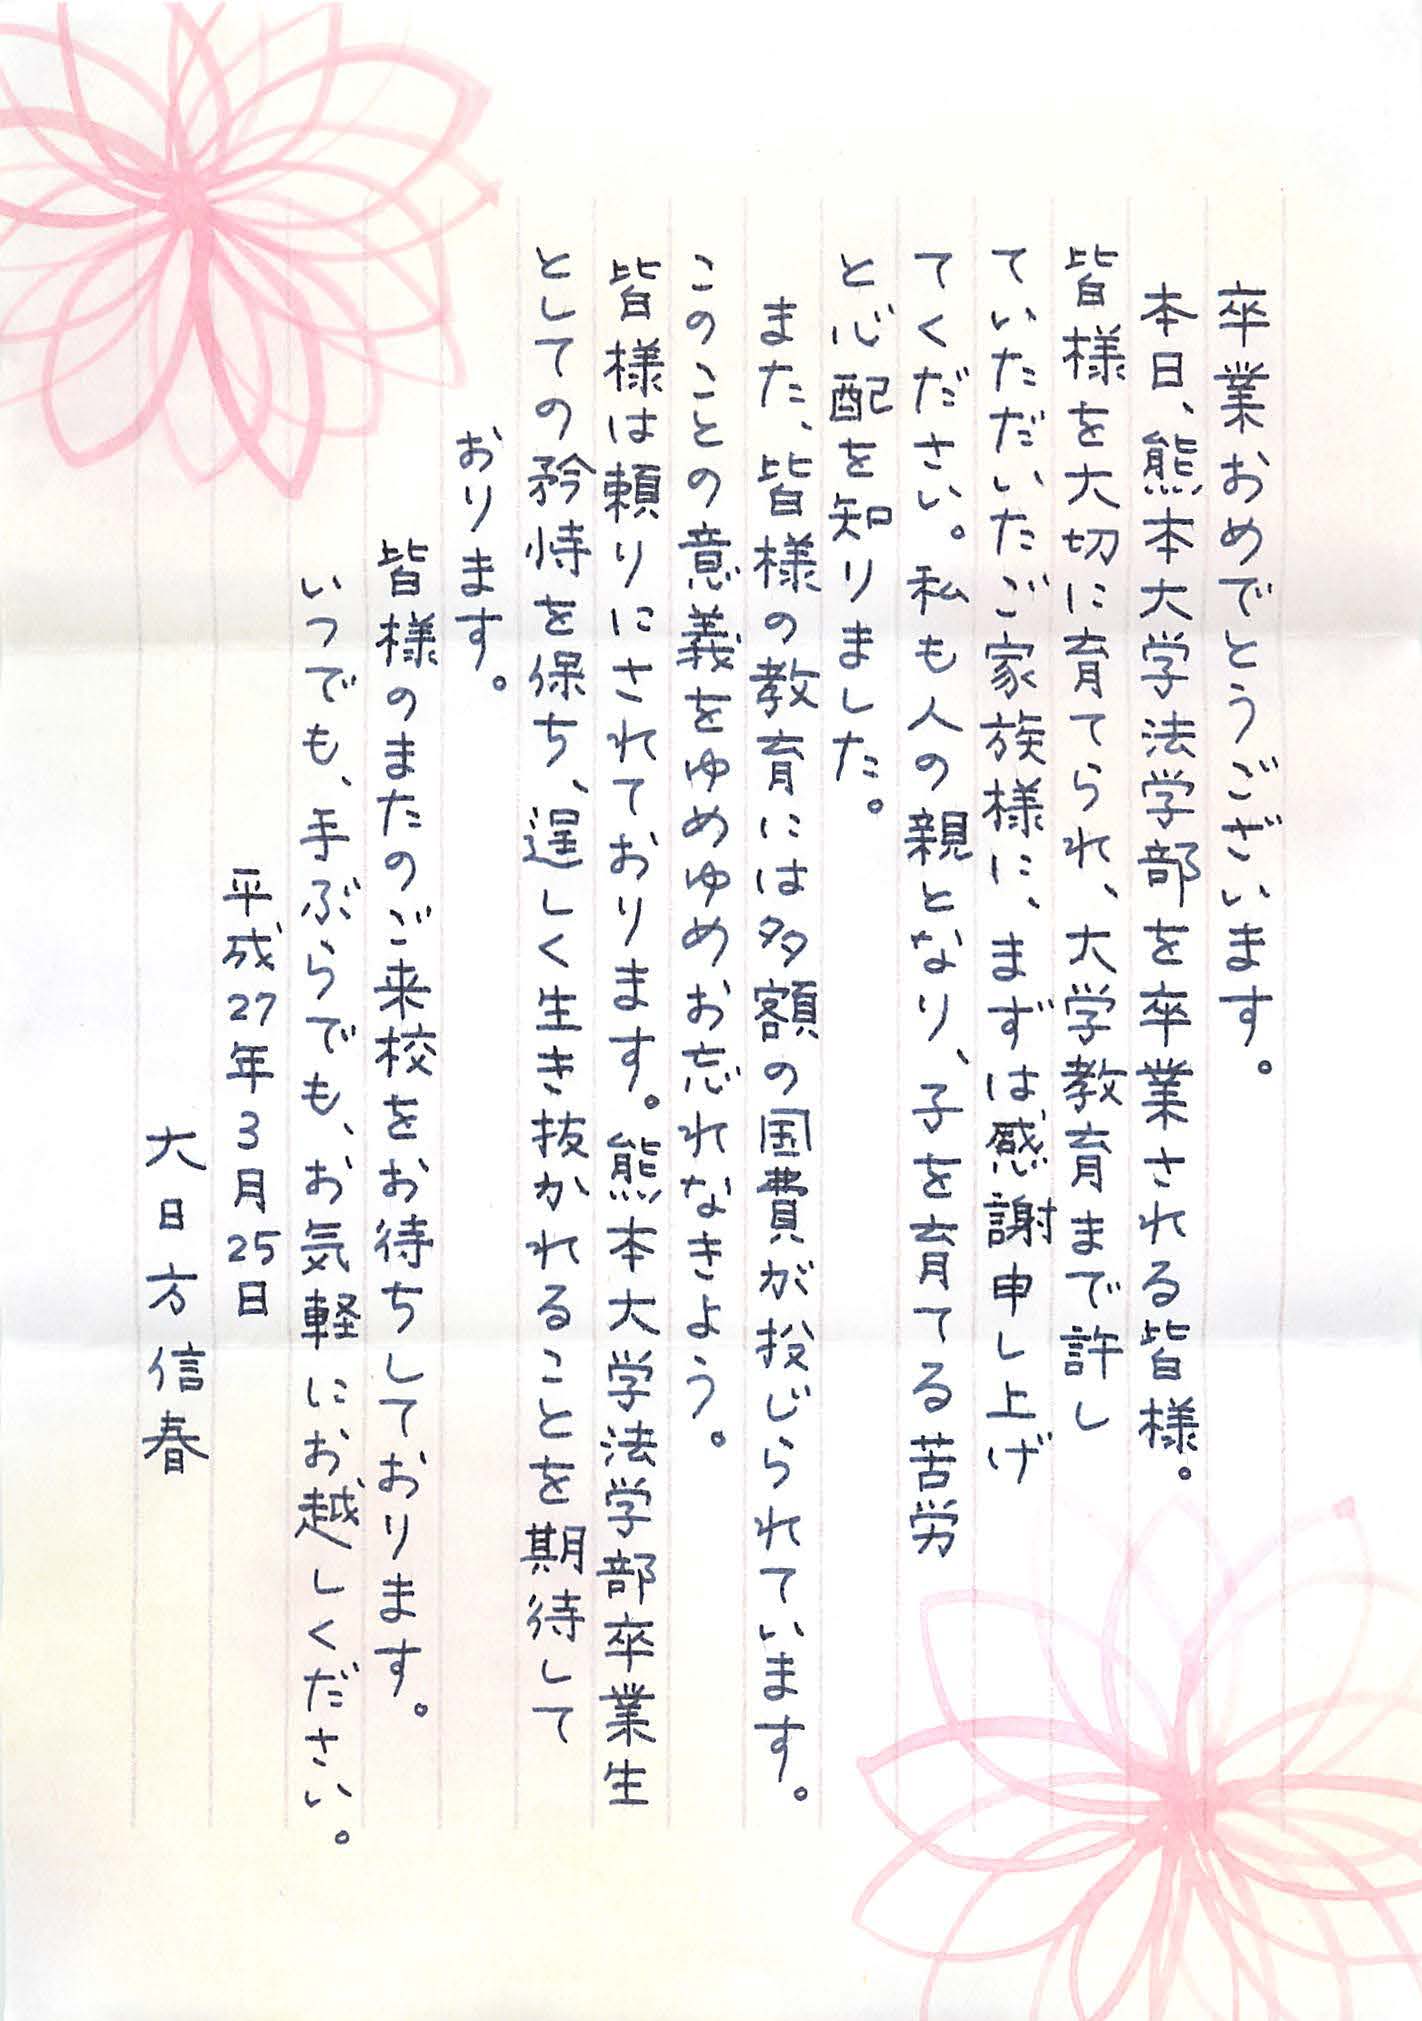 卒業おめでとうございます。
本日、熊本大学法学部を卒業される皆様。
皆様を大切に育てられ、大学教育まで許し
ていただいたご家族様に、まずは感謝申し上げ
てください。私も人の親となり、子を育てる苦労
と心配を知りました。
また、皆様の教育には多額の国費が投じられています。
このことの意義をゆめゆめお忘れなきよう。
皆様は頼りにされております。熊本大学法学部卒業生
としての矜恃を保ち、逞しく生き抜かれることを期待して
おります。
皆様のまたのご来校をお待ちしております。
いつでも、手ぶらでも、お気軽にお越しください。
平成27年3月25日
大日方信春